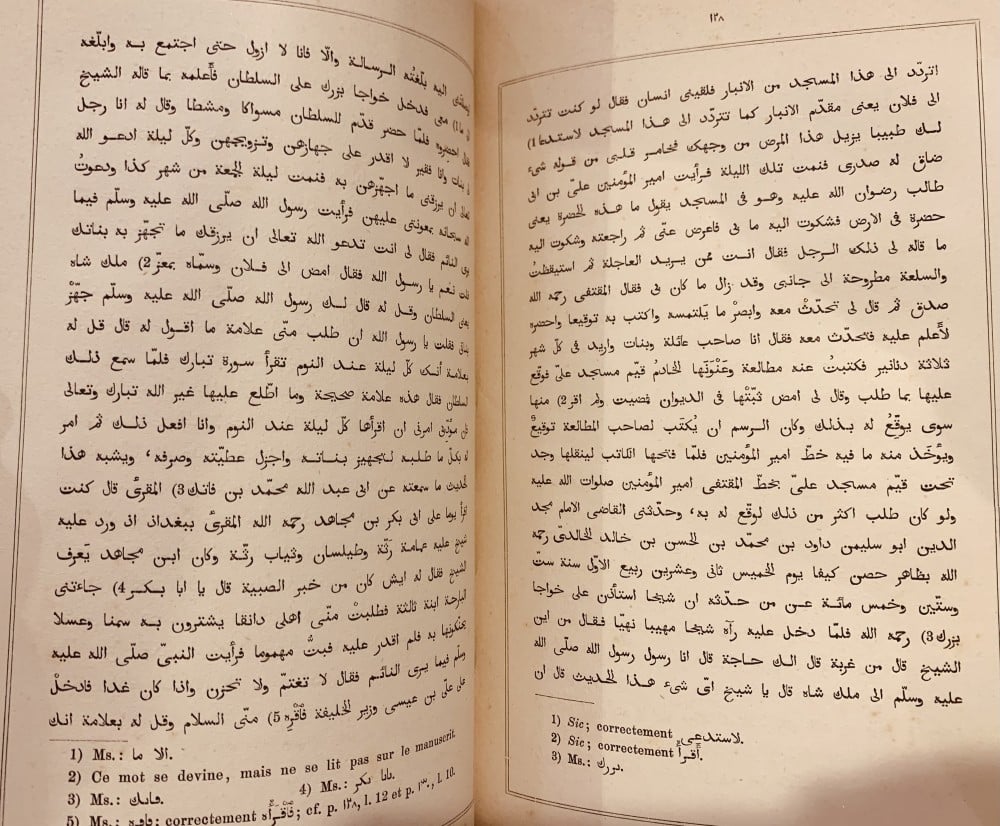 ١٣٨
اتردّد الى هذا المسجد من الانبار فلقينى انسان فقال لو كنت تتردّد
الى فلان يعنى مقدّم الانبار كما تتردّد الى هذا المسجد لاستدعا1)
لك طبيبا يزيل هذا المرض من وجهك فخامر قلبى من قوله شىء
ضاق له صدرى فنمت تلك الليلة فرأيت امير المؤمنين علىّ بن ابى
طالب رضوان الله عليه وهو فى المسجد يقول ما هذه الحضرة يعنى
حضرة فى الارض فشكوت اليه ما بى فاعرض عنّى ثم راجعته وشكوت اليه
ما قاله لى ذلك الرجل فقال انت ممّن يريد العاجلة ثم استيقظتُ
والسلعة مطروحة الى جانبى وقد زال ما كان بى فقال المقتفى رحمه الله
صدق ثم قال لى تحدّثْ معه وابصرْ ما يَلتمسه واكتب به توقيعا واحضره
لأُعلم عليه فتحدّثت معه فقال انا صاحب عائلة وبنات واريد فى كلّ شهر
ثلاثة دنانير فكتبتُ عنه مطالعة وعَنْوَنَها الخادمُ قيّم مسجد علىّ فوقّع
عليها بما طلب وقال لى امض ثبّتْها فى الديوان فمضيت ولم اقر2) منها
سوى يوقّعُ له بذلك وكان الرسم ان يُكتب لصاحب المطالعة توقيعٌ
ويؤخَذ منه ما فيه خطّ امير المؤمنين فلمّا فتحها الكاتب لينقلها وجد
تحت قيّم مسجد علىّ بخطّ المقتفى امير المؤمنين صلوات الله عليه
ولو كان طلب اكثر من ذلك لوقّع له به، وحدّثنى القاضى الامام مجد
الدين ابو سليمن داود بن محمّد بن الحسن بن خالد الخالدىّ رحمه
الله بظاهر حصن كيفا يوم الخميس ثانى وعشرين ربيع الاوّل سنة ستّ
وستّين وخمس مائة عن من حدّثه ان شيخا استأذن على خواجا
بزرك3) رحمه الله فلمّا دخل عليه رآه شيخا مهيبا نهيّا فقال من اين
الشيخ قال من غربة قال الك حاجة قال انا رسول رسول الله صلّى الله
عليه وسلّم الى ملك شاه قال يا شيخ اىّ شىء هذا الحديث قال ان
1) Sic; correctement لاستدعى.
2) Sic; correctement أَقرأْ.
3) Ms.: بررك.
اليه بلّغتُه الرسالة والّا فانا لا ازول حتى اجتمع به وابلّغه
ما1) معى فدخل خواجا بزرك على السلطان فأَعلمه بما قاله الشيخ
احضروه فلمّا حضر قدّم للسلطان مسواكا ومشطا وقال له انا رجل
بنات وانا فقير لا اقدر على جهازهن وتزويجهن وكلّ ليلة ادعو الله
ان يرزقنى ما اجهّزهن به فنمت ليلة الجمعة من شهر كذا ودعوتُ
سبحانه بمعونتى عليهن فرأيت رسول الله صلّى الله عليه وسلّم فيما
يرى النائم فقال لى انت تدعو الله تعالى ان يرزقك ما تجهّز به بناتك
قلت نعم يا رسول الله فقال امض الى فلان وسمّاه بمعزّ2) ملك شاه
يعنى السلطان وقل له قال لك رسول الله صلّى الله عليه وسلّم جهّزْ
بناتى فقلت يا رسول الله ان طلب منّى علامة ما اقول له قال قل له
بعلامة أنّك كلّ ليلة عند النوم تقرأ سورة تبارك فلمّا سمع ذلك
السلطان فقال هذه علامة صحيحة وما اطّلع عليها غير الله تبارك وتعالى
فان مؤدّبى امرنى ان اقرأها كلّ ليلة عند النوم وانا افعل ذلك ثم امر
له بكلّ ما طلبه لتجهيز بناته واجزل عطيّته وصرفه، ويشبه هذا
الحديث ما سمعته عن ابى عبد الله محمّد بن فاتك3) المقرئ قال كنت
اقرأ يوما على ابى بكر بن مجاهد رحمه الله المقرئ ببغداذ اذ ورد عليه
شيخ عليه عمامة رثّة وطيلسان وثياب رثّة وكان ابن مجاهد يَعرف
الشيخ فقال له ايش كان من خبر الصبية قال يا ابا بكر4) جاءتنى
البارحة ابنة ثالثة فطلبتْ منّى اهلى دانقا يشترون به سمنا وعسلا
يحنّكونها به فلم اقدر عليه فبتُّ مهموما فرأيت النبىّ صلّى الله عليه
وسلّم فيما يرى النائم فقال لا تغتمّ ولا تحزن واذا كان غدا فادخلْ
على علىّ بن عيسى وزير الخليفة فَأَقْرِه5) منّى السلام وقل له بعلامة انك
1) Ms.: الا ما.
2) Ce mot se devine, mais ne se lit pas sur le manuscrit.
3) Ms.: فاىك. 4) Ms.: بابا ىكر.
5) Ms.: فاقره; correctement فَأَقْرِأْه; cf. p. ١٣٨, l. 12 et p. ١٣٠, l. 10.